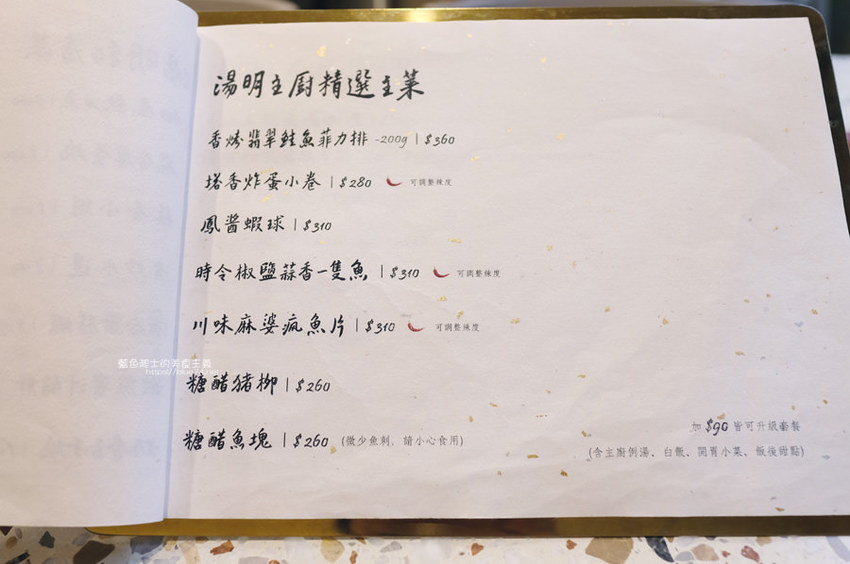 湯明主廚精選主菜
香烤翡翠鮭魚菲力排 -200g | $360
塔香炸蛋小卷 | $280 可調整辣度
鳳醬蝦球 | $310
時令椒鹽蒜香一隻魚 | $310 可調整辣度
川味麻婆瘋魚片 | $310 可調整辣度
糖醋豬柳 | $260
糖醋魚塊 | $260 (微少魚刺, 請小心食用)
加 $90 皆可升級套餐
(含主廚例湯、白飯、開胃小菜、飯後甜點)